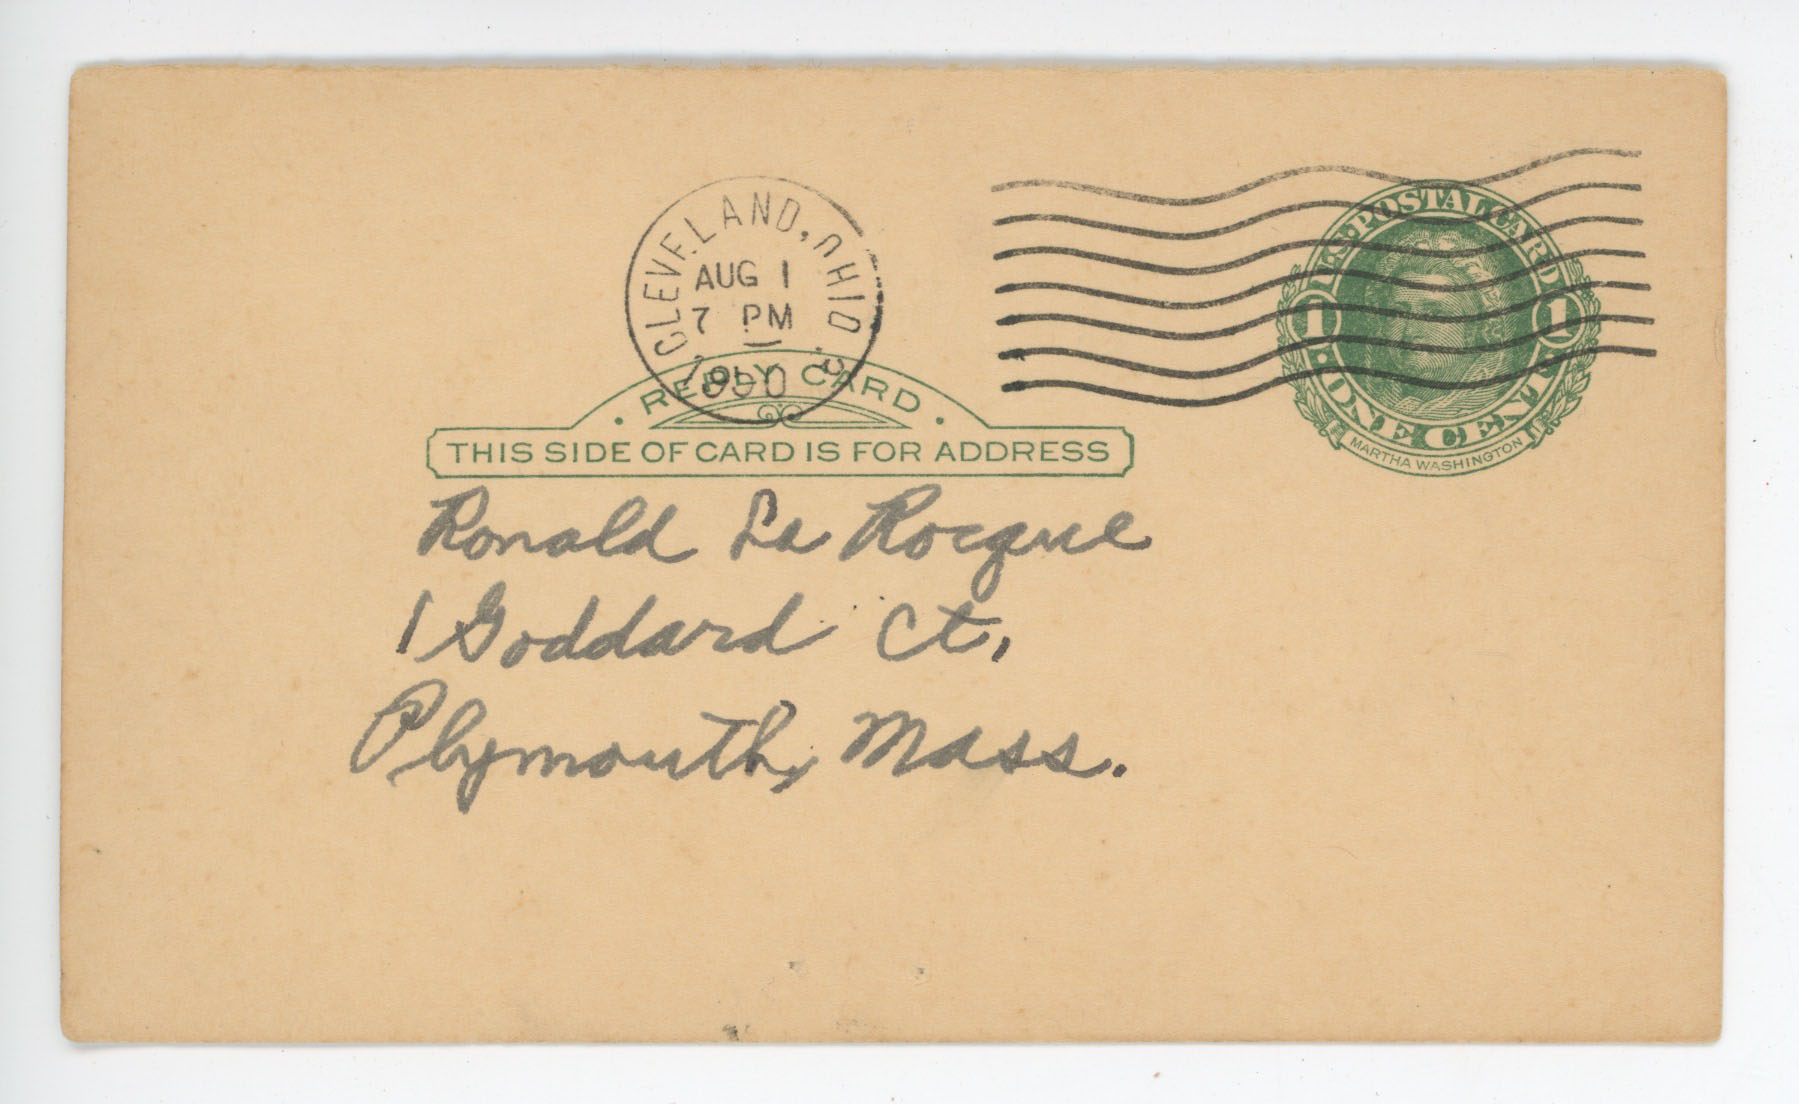 CLEVELAND, OHIO
AUG 1
7 PM
1950
U.S. POSTAL CARD
1 1
ONE CENT
MARTHA WASHINGTON
REPLY CARD
THIS SIDE OF CARD IS FOR ADDRESS
Ronald La Rocque
1 Goddard Ct.,
Plymouth, Mass.